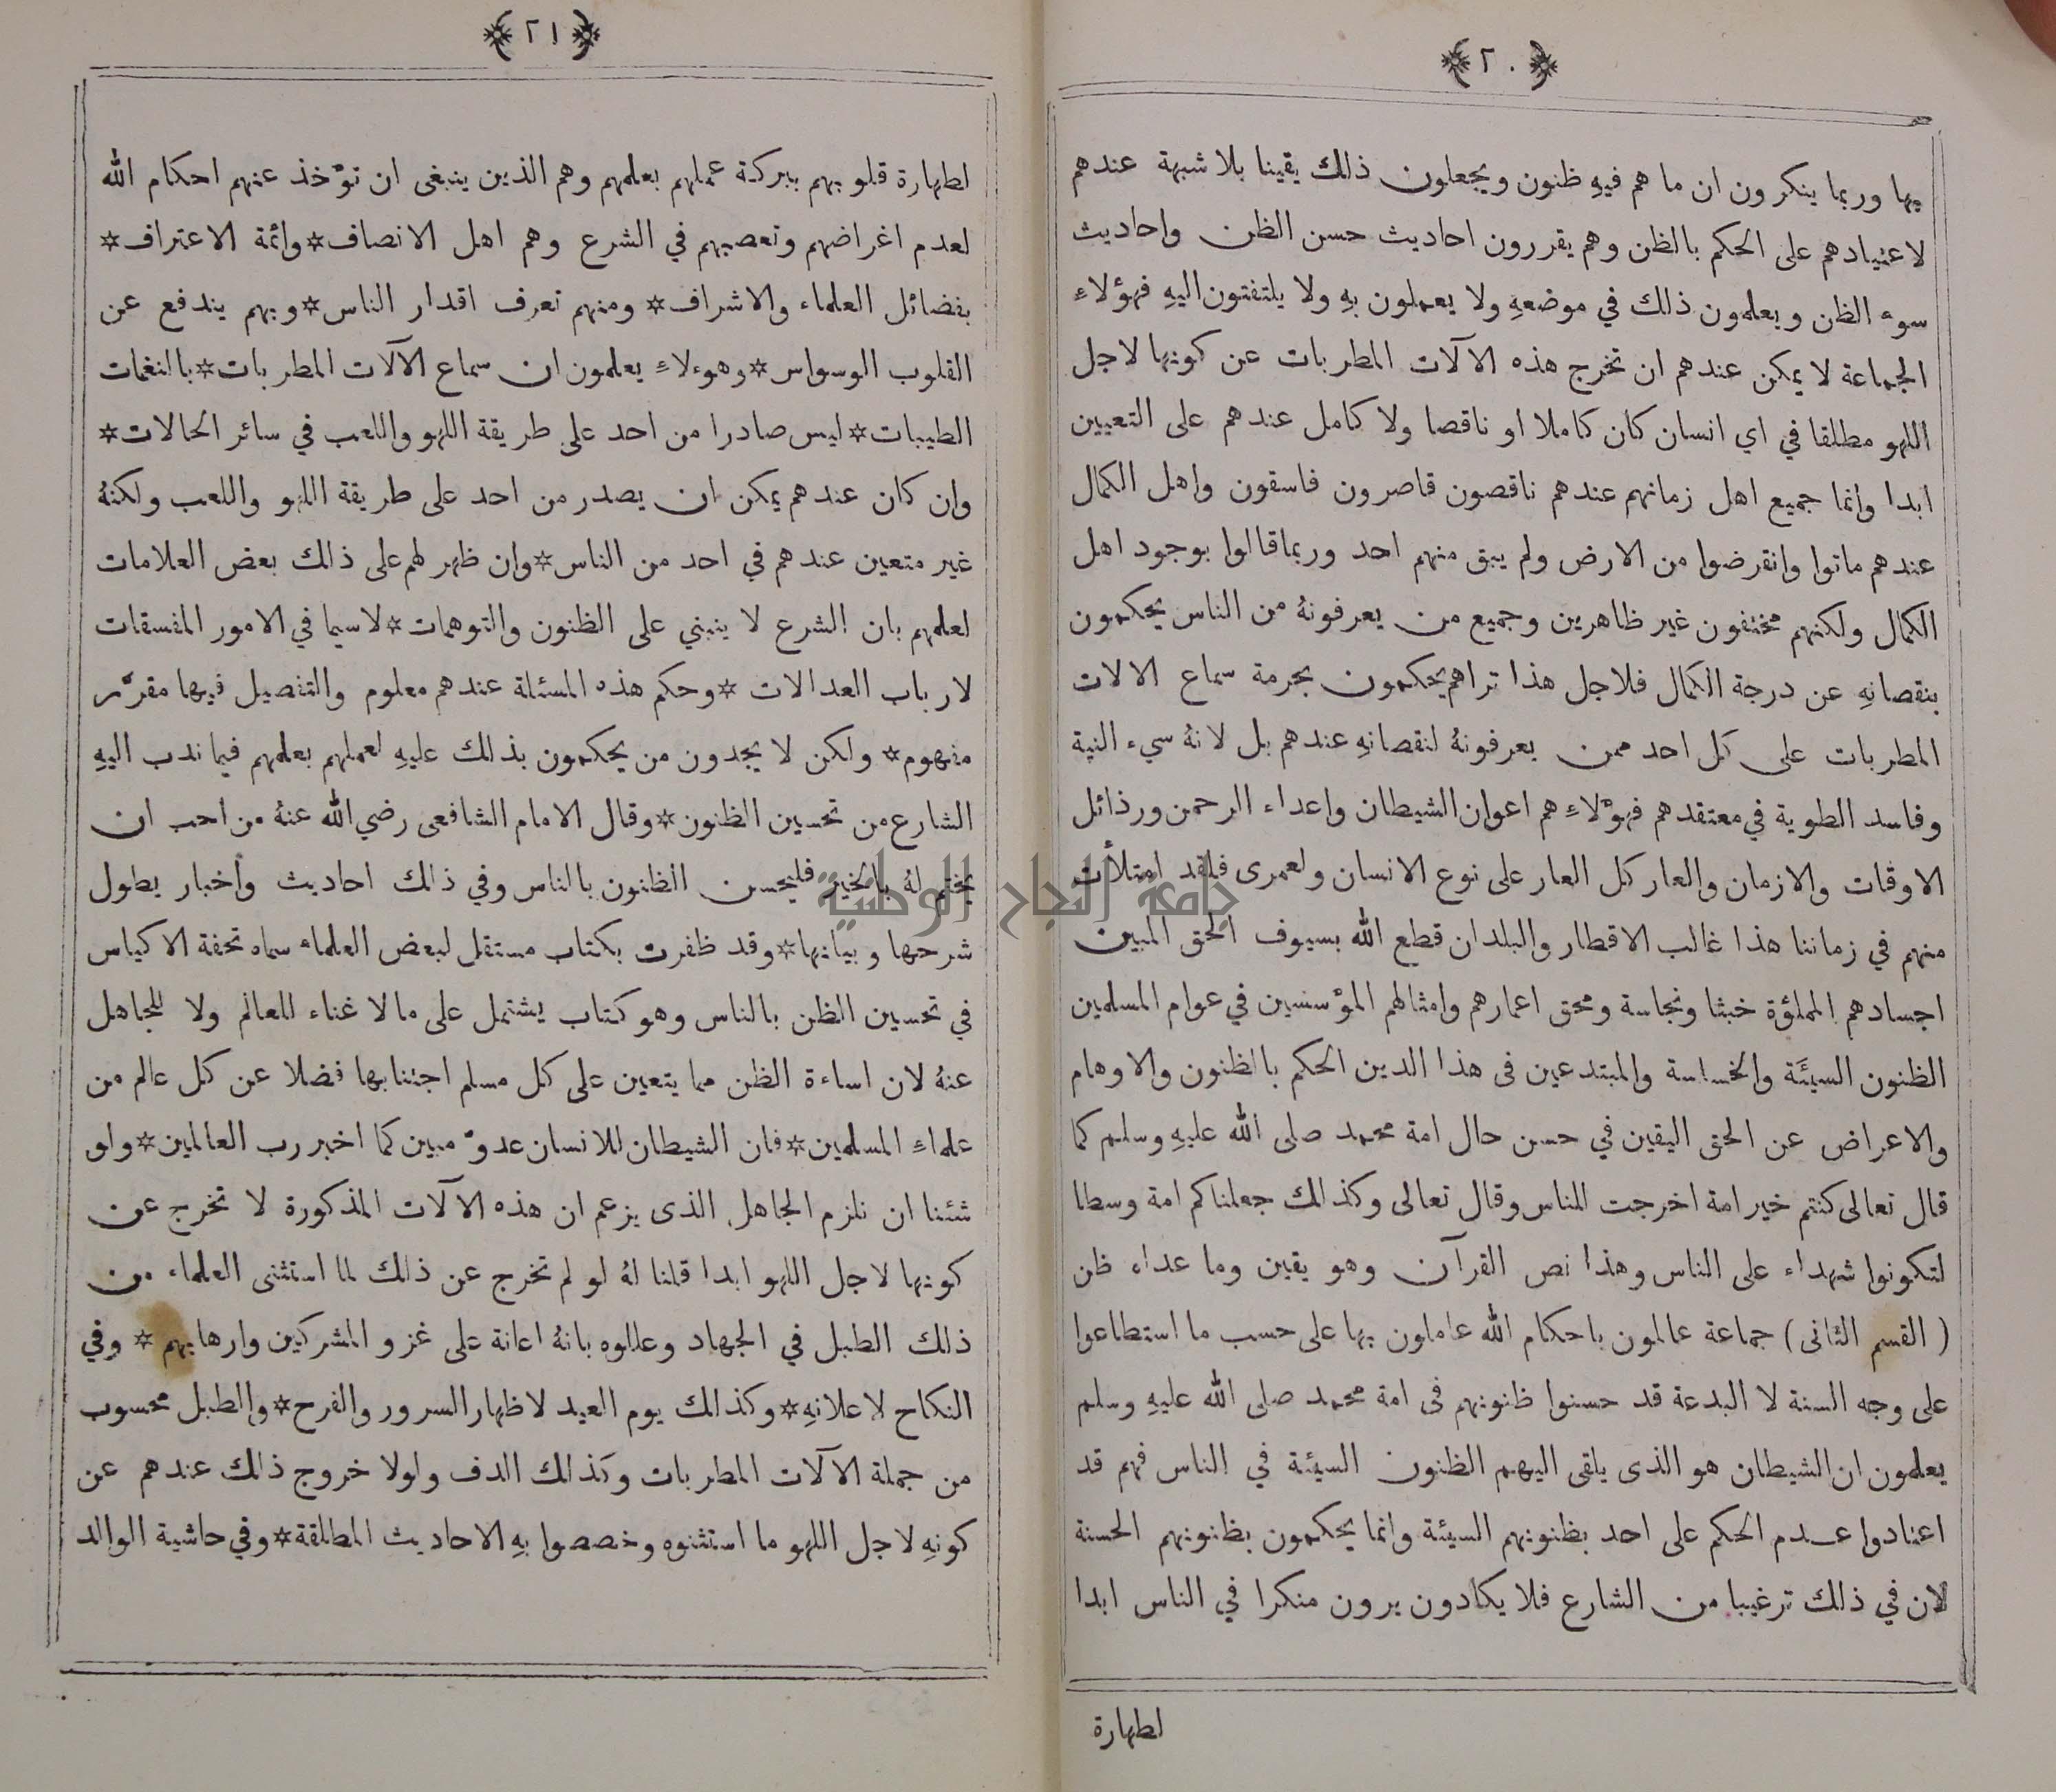 ﴿٢٠﴾
بها وربما ينكرون ان ما هم فيهِ ظنون ويجعلون ذلك يقينا بلا شبهة عندهم
لاعتيادهم على الحكم بالظن وهم يقررون احاديث حسن الظن واحاديث
سوء الظن ويعلمون ذلك في موضعهِ ولا يعملون بهِ ولا يلتفتون اليهِ فهؤلاءِ
الجماعة لا يمكن عندهم ان تخرج هذه الآلات المطربات عن كونها لاجل
اللهو مطلقا في اي انسان كان كاملا او ناقصا ولا كامل عندهم على التعيين
ابدا وانما جميع اهل زمانهم عندهم ناقصون قاصرون فاسقون واهل الكمال
عندهم ماتوا وانقرضوا من الارض ولم يبق منهم احد وربما قالوا بوجود اهل
الكمال ولكنهم مختفون غير ظاهرين وجميع من يعرفونهُ من الناس يحكمون
بنقصانهِ عن درجة الكمال فلاجل هذا تراهم يحكمون بحرمة سماع الالات
المطربات على كل احد ممن يعرفونهُ لنقصانهِ عندهم بل لانهُ سيء النية
وفاسد الطوية في معتقدهم فهؤلاءِ هم اعوان الشيطان واعداء الرحمن ورذائل
الاوقات والازمان والعار كل العار على نوع الانسان ولعمرى فلقد امتلأت
منهم في زماننا هذا غالب الاقطار والبلدان قطع الله بسيوف الحق المبين
اجسادهم المملؤة خبثا ونجاسة ومحق اعمارهم وامثالهم المؤسسين في عوام المسلمين
الظنون السيئَة والخساسة والمبتدعين فى هذا الدين الحكم بالظنون والاوهام
والاعراض عن الحق اليقين في حسن حال امة محمد صلى الله عليهِ وسلم كما
قال تعالى كنتم خير امة اخرجت للناس وقال تعالى وكذلك جعلناكم امة وسطا
لتكونوا شهداء على الناس وهذا نص القرآن وهو يقين وما عداه ظن
( القسم الثانى ) جماعة عالمون باحكام الله عاملون بها على حسب ما استطاعوا
على وجه السنة لا البدعة قد حسنوا ظنونهم فى امة محمد صلى الله عليهِ وسلم
يعلمون ان الشيطان هو الذى يلقى اليهم الظنون السيئة في الناس فهم قد
اعتادوا عدم الحكم على احد بظنونهم السيئة وانما يحكمون بظنونهم الحسنة
لان في ذلك ترغيبا من الشارع فلا يكادون يرون منكرا في الناس ابدا
لطهارة
﴿٢١﴾
لطهارة قلوبهم ببركة عملهم بعلمهم وهم الذين ينبغى ان تؤخذ عنهم احكام الله
لعدم اغراضهم وتعصبهم في الشرع وهم اهل الانصاف*وائمة الاعتراف*
بفضائل العلماء والاشراف* ومنهم تعرف اقدار الناس*وبهم يندفع عن
القلوب الوسواس*وهوءلاءِ يعلمون ان سماع الآلات المطربات*بالنغمات
الطيبات*ليس صادرا من احد على طريقة اللهو واللعب في سائر الحالات*
وان كان عندهم يمكن ان يصدر من احد على طريقة اللهو واللعب ولكنهُ
غير متعين عندهم في احد من الناس*وان ظهر لهم على ذلك بعض العلامات
لعلمهم بان الشرع لا ينبني على الظنون والتوهمات*لاسيما في الامور المفسقات
لارباب العدالات *وحكم هذه المسئلة عندهم معلوم والتفصيل فيها مقرَّر
مفهوم* ولكن لا يجدون من يحكمون بذلك عليهِ لعملهم بعلمهم فيما ندب اليهِ
الشارع من تحسين الظنون*وقال الامام الشافعى رضي الله عنهُ من احب ان
يختم لهُ بالخير فليحسن الظنون بالناس وفي ذلك احاديث وأخبار يطول
شرحها وبيانها*وقد ظفرت بكتاب مستقل لبعض العلماء سماه تحفة الاكياس
في تحسين الظن بالناس وهو كتاب يشتمل على ما لا غناء للعالم ولا للجاهل
عنهُ لان اساءة الظن مما يتعين على كل مسلم اجتنابها فضلا عن كل عالم من
علماءِ المسلمين*فان الشيطان للانسان عدوّ مبين كما اخبر رب العالمين*ولو
شئنا ان نلزم الجاهل الذى يزعم ان هذه الآلات المذكورة لا تخرج عن
كونها لاجل اللهو ابدا قلنا لهُ لو لم تخرج عن ذلك لما استثنى العلماء من
ذلك الطبل في الجهاد وعللوه بانهُ اعانة على غزو المشركين وارهابهم* وفي
النكاح لاعلانهِ*وكذلك يوم العيد لاظهار السرور والفرح*والطبل محسوب
من جملة الآلات المطربات وكذلك الدف ولولا خروج ذلك عندهم عن
كونهِ لاجل اللهو ما استثنوه وخصصوا بهِ الاحاديث المطلقة*وفي حاشية الوالد
جامعة النجاح الوطنية